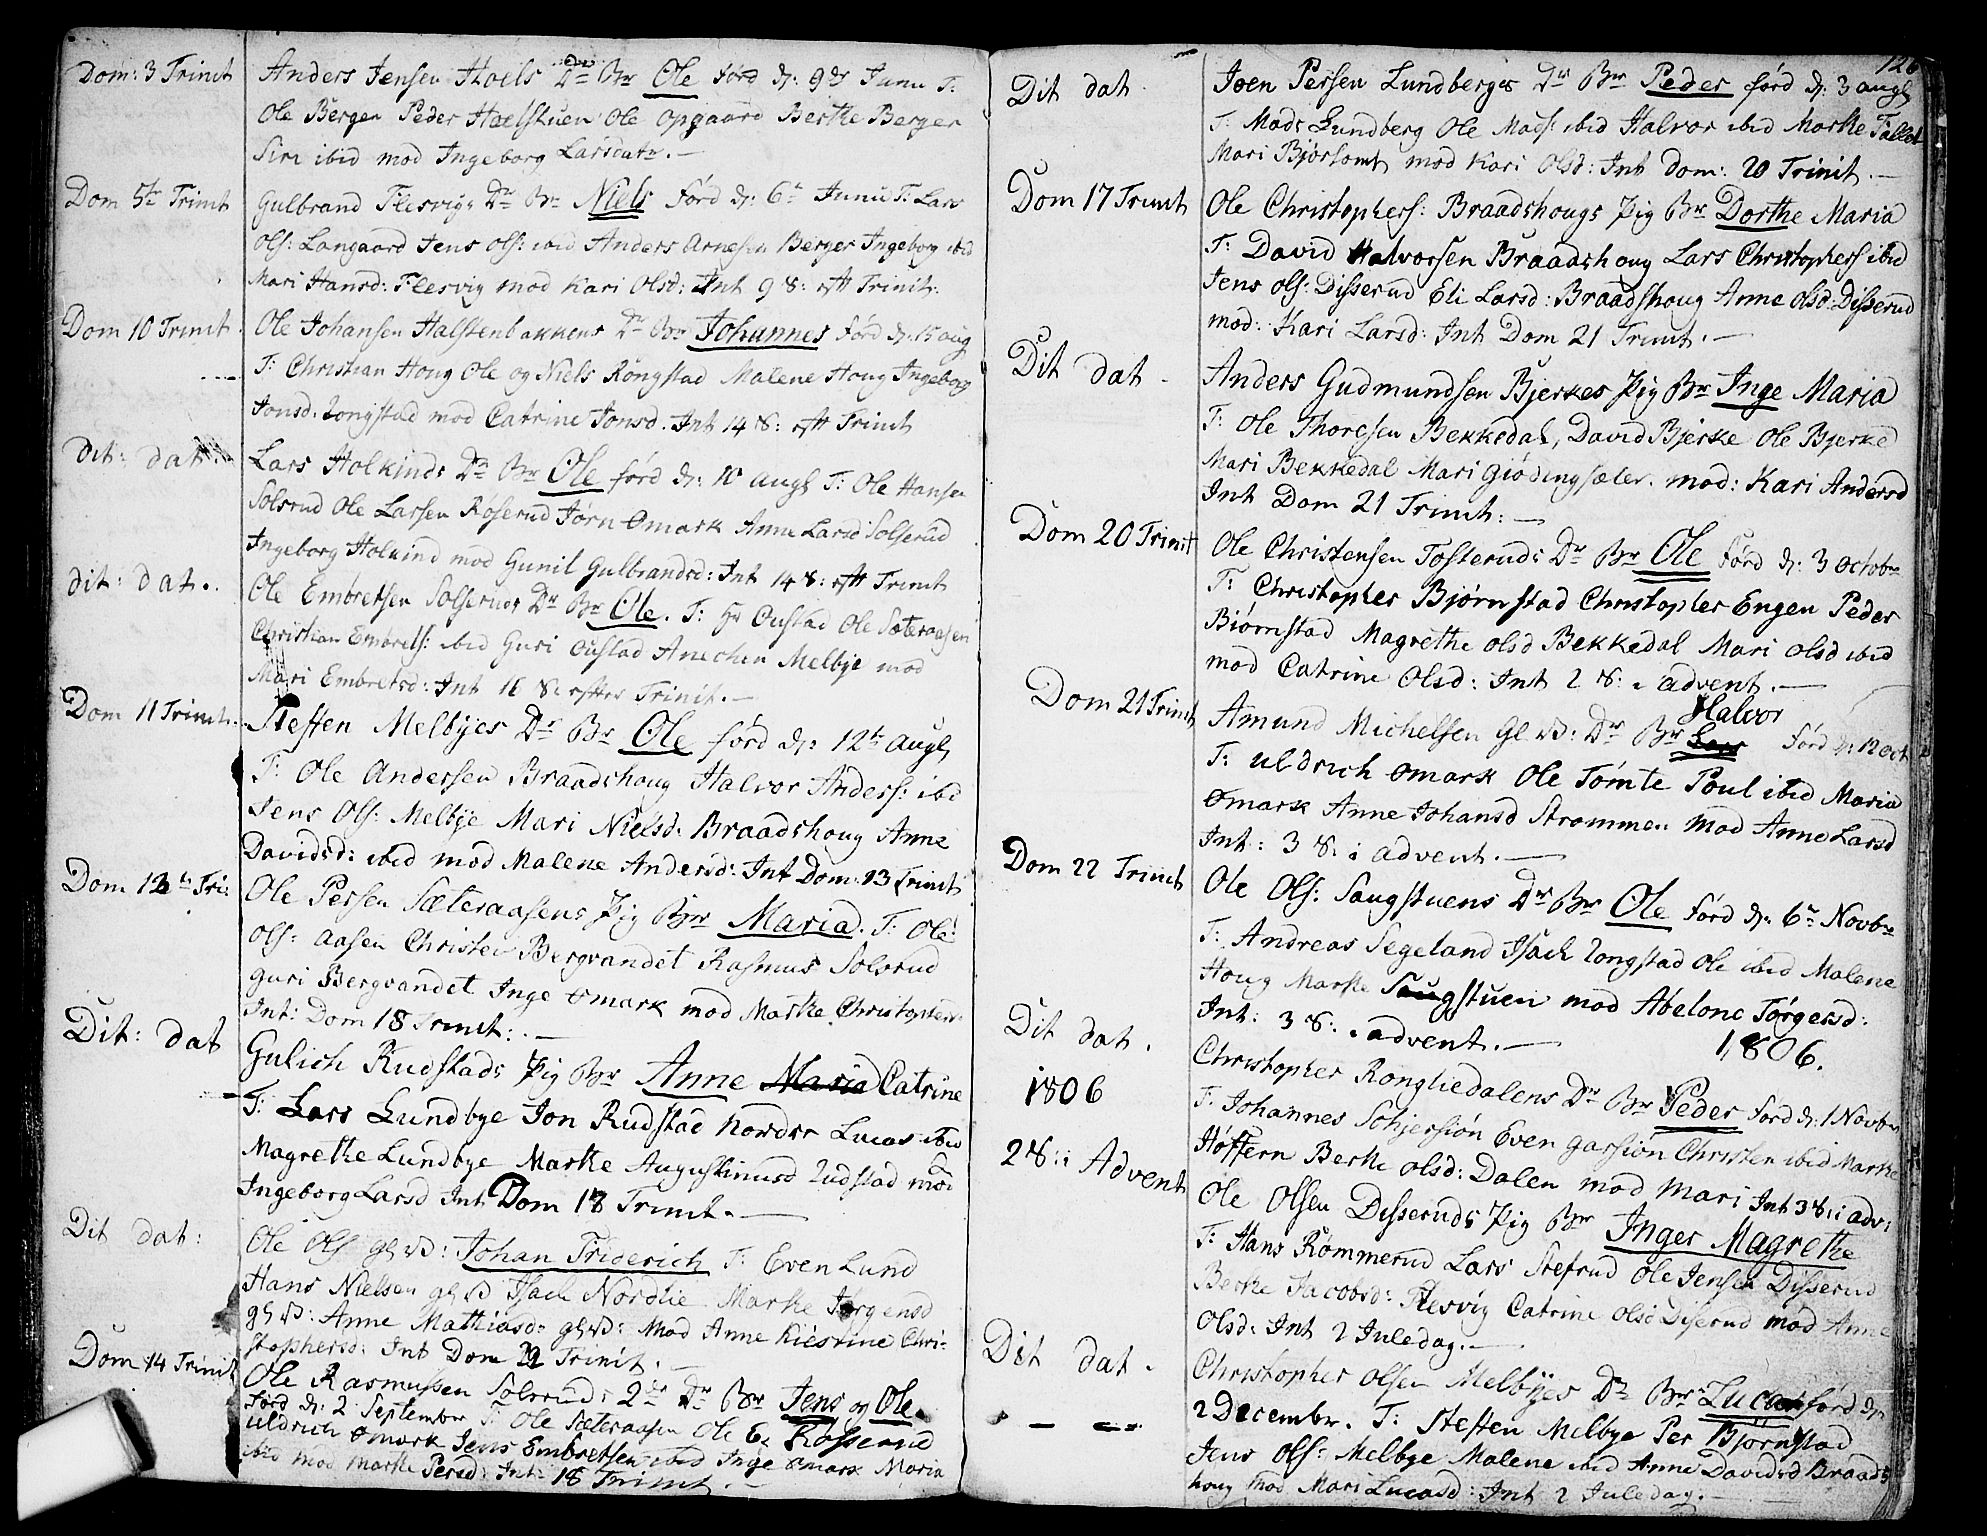 Dom: 3 Trinit
Anders Jensen Hoels Dr Br Ole förd d: 9de Junii T:
Ole Bergen Peder Hoelstuen Ole Opgaard Berthe Berger
Siri ibid mod Ingeborg Larsdatr. —
Dom 5te Trinit
Gulbrand Flesvigs Dr Br Niels förd d: 6te Junii T: Lars
Ols: Langaard Jens Ols: ibid Anders Arnesen Berger Ingeborg ibid
Mari Hansd: Flesvig mod Kari Olsd: Int 9 S: eftr Trinit.
Dom 10 Trinit
Ole Johansen Halstenbakkens Dr Br Johannes förd d: 15 aug
T: Christian Houg Ole og Niels Rongstad Malene Houg Ingeborg
Jonsd. Rongstad mod Catrine Jonsd. Int 14 S: eftr Trinit
dit: dat.
Lars Holkinds Dr Br Ole förd d: 10 augs T: Ole Hansen
Solsrud Ole Larsen Röserud Jörn Omark Anne Larsd Solserud
Ingeborg Holkind mod Gunil Gulbrandsd: Int 14 S: eftr Trinit
dit: dat.
Ole Embretsen Solseruds Dr Br Ole. T: Hr Oustad Ole Sæteraasen
Christian Embrets: ibid Guri Oustad Anechen Melbye mod
Mari Embretsd: Int 16 S: efter Trinit. —
Dom 11 Trinit.
Steffen Melbyes Dr Br Ole förd d: 12te augs,
T: Ole Andersen Braadshoug Halvor Anders: ibd
Jens Ols: Melbye Mari Nielsd: Braadshoug Anne
Davidsd: ibid mod Malene Andersd: Int Dom: 13 Trinit
Dom 13te Tri:
Ole Persen Sæteraasens Pig Br Maria. T: Ole
Ols: Aasen Christen Bergvandet Rasmus Solsrud
Guri Bergvandet Inge Omark mod Marthe Christophers:
Int: Dom 18 Trinit: —
Dit: dat
Gulich Rudstads Pig Br Anne Maria Catrine
T: Lars Lundbye Jon Rudstad Nordre Lucas ibid
Magrethe Lundbye Marthe Augustinusd Rudstad mod
Ingeborg Larsd Int Dom 18 Trinit. —
Dit dat:
Ole Ols gl: V: Johan Friderich T: Even Lund
Hans Nielsen gl: V Isach Nordlie Marthe Jörgensd
gl: V: Anne Mathiasd: gl: V: mod Anne Kiestine Chri-
stophersd: Int Dom 19 Trinit. —
Dom 14 Trinit
Ole Rasmussen Solsruds 2de Dr Br Jens og Ole
förd d: 2 Septembr T: Ole Sæteraasen Ole Er Rösserud
Uldrich Omark Jens Embretsen ibid Inge Omark Maria
ibid mod Marthe Persd: Int: 18 Trinit. —
126
Dit dat
Joen Persen Lundberges Dr Br Peder förd d: 3 augs
T: Mads Lundberg Ole Mads: ibid Halvor ibid Marthe Fallet
Mari Bjørtomt mod Kari Olsd: Int Dom: 20 Trinit. —
Dom 17 Trinit
Ole Christophers: Braadshougs Pig Br Dorthe Maria
T: David Halvorsen Braadshoug Lars Christophers ibid
Jens Ols: Disserud Eli Larsd: Braadshoug Anne Olsd: Disserud
mod: Kari Larsd: Int Dom 21 Trinit. —
Dit dat.
Anders Gudmundsen Bjerkes Pig Br Inge Maria
T: Ole Thoresen Bekkedal, David Bjerke Ole Bjerke
Mari Bekkedal Mari Giödingsæter. mod: Kari Andersd
Int Dom 21 Trinit: —
Dom 20 Trinit
Ole Christensen Tosteruds Dr Br Ole förd d: 3 octobr
T: Christopher Bjørnstad Christopher Engen Peder
Biørnstad Magrethe Olsd Bekkedal Mari Olsd ibid
mod Catrine Olsd: Int 2 S: i advent. —
Dom 21 Trinit
Halvor
Amund Michelsen gl: V: Dr Br Lars förd d: 12 oct
T: Uldrich Omark Ole Tömte Poul ibid Maria
Omark Anne Johansd Strommen mod Anne Larsd
Int: 3 S: i advent. —
Dom 22 Trinit
Ole Ols: Saugstuens Dr Br Ole förd d: 6te Novbr
T: Andreas Segeland Isach Rongstad Ole ibid Malene
Houg Marthe Saugstuen mod Abelone Törgersd:
Int: 3 S: i advent. —
1806.
Dit dat.
Christopher Rongliedalens Dr Br Peder förd d: 1 Novbr
1806
T: Johannes Schjersiön Even Garsiön Christen ibid Marthe
Höffern Berthe Olsd: Dalen mod Mari Int 3 S: i adv:
2 S: i Advent
Ole Olsen Disseruds Pig Br Inger Magrethe
T: Hans Römmerud Lars Stefrud Ole Jensen Disserud
Berthe Jacobsd: Flesvig Catrine Olsd Disserud mod Anne
Olsd: Int 2 Juledag. —
Dit dat.
Christopher Olsen Melbyes Dr Br Lucas förd d:
2 Decembr. T: Steffen Melbye Per Bjørnstad
Jens Ols: Melbye Malene ibid Anne Davidsd Braads
houg mod Mari Lucasd: Int 2 Juledag. —